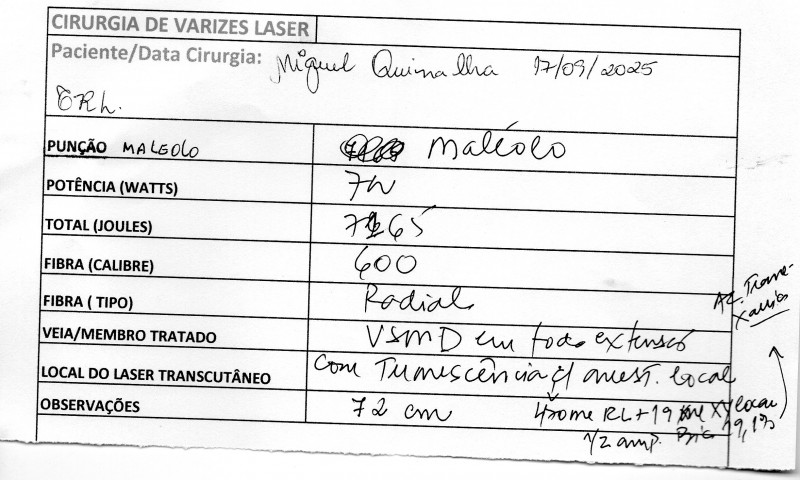 CIRURGIA DE VARIZES LASER
Paciente/Data Cirurgia: Miguel Quinalha 17/09/2025
PUNÇÃO MALEOLO Maléolo
POTÊNCIA (WATTS) 7W
TOTAL (JOULES)
FIBRA (CALIBRE) 600
FIBRA ( TIPO) Radial
VEIA/MEMBRO TRATADO VSMD em toda extensão
LOCAL DO LASER TRANSCUTÂNEO com Tumescência c/ anest. local
OBSERVAÇÕES 72 cm RL + 19 XYlocai
1/2 amp. 9,1%